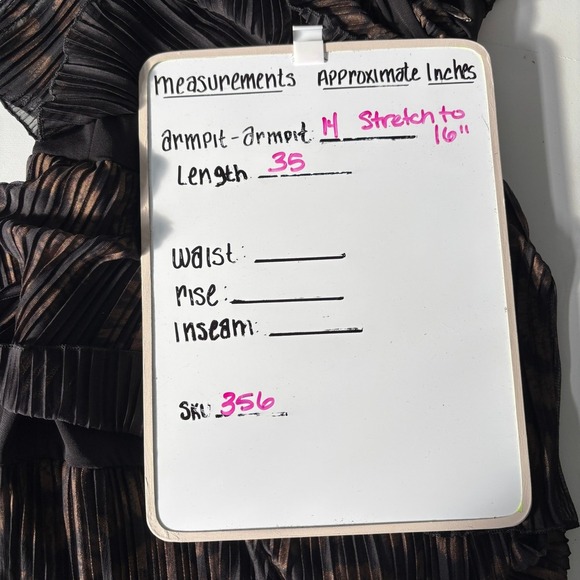 measurements Approximate Inches
armpit-armpit 14 Stretch to 16"
Length 35
waist:
rise:
Inseam:
SKU 356